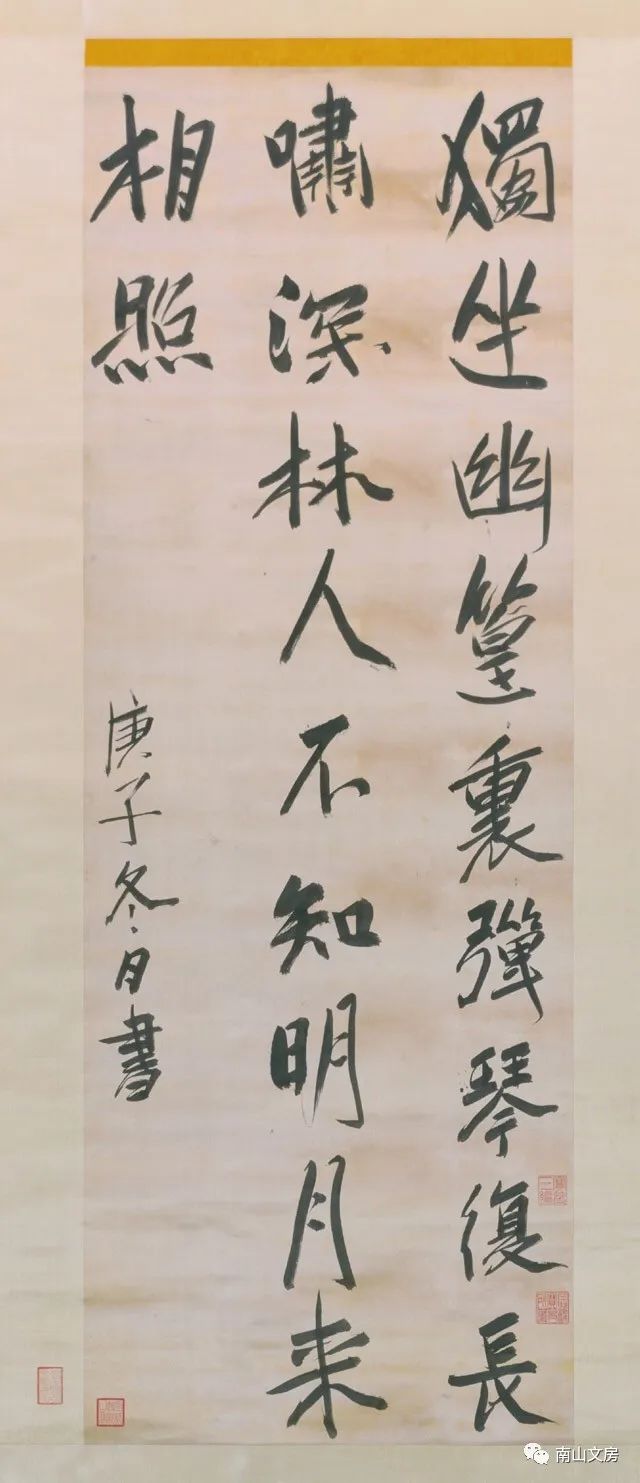 獨坐幽篁裏彈琴復長
嘯深林人不知明月来
相照
庚子冬月書
南山文房